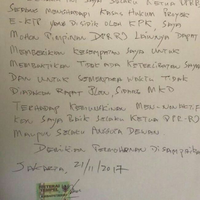 INI SAYA SELAKU KETUA DPR RI
SEDANG MENGHADAPI KASUS HUKUM PROYEK
E-KTP YANG DISIDIK OLEH KPK
MOHON PIMPINAN DPR RI LAINNYA DAPAT
MEMBERIKAN KESEMPATAN SAYA UNTUK
MEMBUKTIKAN TIDAK ADA KETERLIBATAN SAYA
DAN UNTUK SEMENTARA WAKTU TIDAK
RAPAT PLENO SIDANG MKD
TERHADAP KEMUNGKINAN MENONAKTIF
KAN SAYA BAIK SELAKU KETUA DPR-RI
MAUPUN SELAKU ANGGOTA DEWAN
DEMIKIAN PERMOHONAN DISAMPAIKAN
JAKARTA, 21/11/2017